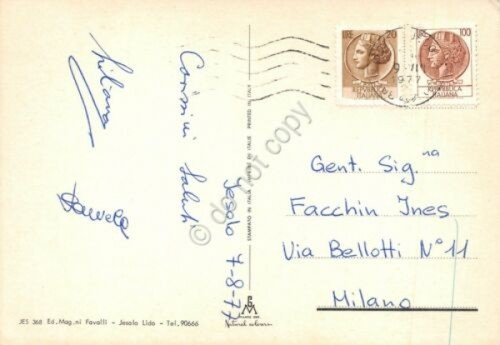 Liliana
Carissimi Saluti
Jesolo 7-8-77
Daniela
JES 368 Ed. Mag.ni Favalli - Jesolo Lido - Tel. 90666
STAMPATO IN ITALIA PRINTED IN ITALY
Natural colours
LIRE 20
REPUBBLICA
ITALIANA
LIRE 100
REPUBBLICA
ITALIANA
1977
Gent. Sig.na
Facchin Ines
Via Bellotti N°11
Milano
do not copy